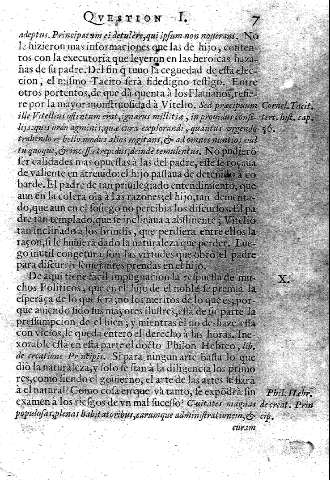 QVESTION I. 7
adeptus. Principatum ei detulere, qui ipsum non noverant. No
le hizieron mas informaciones que las de hijo, conten-
tos con la executoria que leyeron en las heroicas haza-
ñas de su padre. Del fin q̃ tuuo la ceguedad de esta elec-
cion, el mismo Tacito será fidedigno testigo. Entre
otros portentos, de que dà quenta à los Flauianos, refie-
re por la mayor monstruosidad à Vitelio. Sed præcipuum
ille Vitellius ostentum erat, ignarus militiæ, improuidus consi-
lij, quis ordo agminis, quæ cura explorandi, quantus vrgendo
trahendo ve bello modus alios rogitans, & ad omnes nuntios, vul-
tu quoque, & incessu trepidus, deinde temulentus. No pudieron
ser calidades mas opuestas à las del padre, este
de valiente en atreuido: el hijo passaua de
barde. El padre de tan priuilegiado entendimiento, que
aun en la colera oìa à las razones; el hijo, tan
do, que aun en el sosiego no percibia los discursos. El pa-
dre tan templado, que se inclinaua à abstinente: Vitelio
tan inclinado à los brindis, que perdiera entre ellos la
raçon, si le huuiera dado la naturaleza que perder. Lue-
go inutil congetura son las virtudes que obró el padre
para discurrir semejantes prendas en el hijo.
De aqui tiene facil impugnacion la respuesta de mu-
chos Politicos, que en el hijo de el noble se premia la
esperãça de lo que serà, no los meritos de lo que es; por-
que auiendo sido sus mayores ilustres, está de su parte la
pressumpcion de el bien, y mientras el no deshaze
con vicios, le queda entero el derecho à las honras. Ine-
xorable està en esta parte el docto Philon Hebreo, lib.
de creatione Principis. Si para ningun arte basta lo que
diò la naturaleza, y solo se fian à la diligencia los primo-
res, como siendo el gouierno, el arte de las artes se fiarà
à el natural? Como cosa en que và tanto, se expondrà sin
examen à los riesgos de vn mal sucesso? Ciuitates magnas
populosas, plenas habitatoribus, earumque administrationem, &
curam
Cornel. Tacit.
hist. cap.
56.
X.
Phil. Hebr.
de creat. Prin
cip.